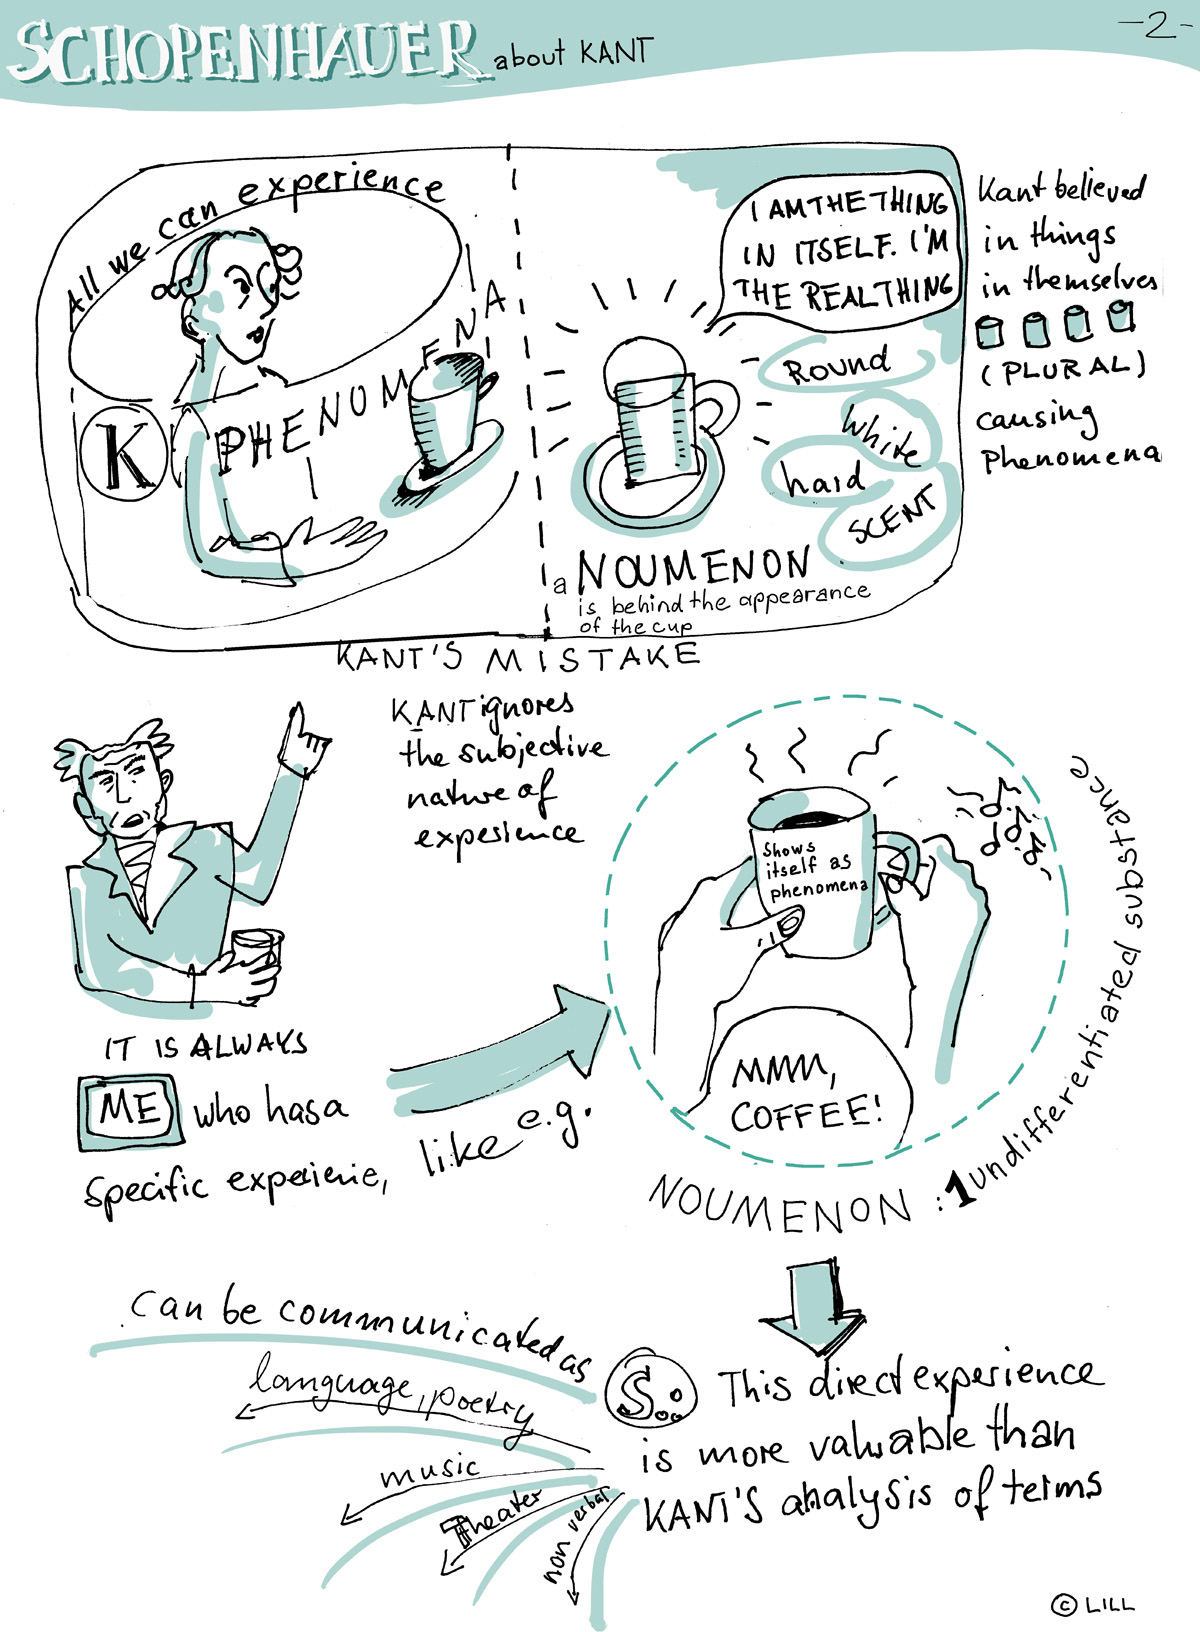 SCHOPENHAUER about KANT
-2-
All we can experience
K
PHENOMENA
I AM THE THING
IN ITSELF. I'M
THE REAL THING
Round
White
hard
SCENT
a NOUMENON
is behind the appearance
of the cup
Kant believed
in things
in themselves
(PLURAL)
causing
Phenomena
KANT'S MISTAKE
KANT ignores
the subjective
nature of
experience
IT IS ALWAYS
ME who has a
specific experience,
like e.g.
Shows
itself as
phenomena
MMM,
COFFEE!
NOUMENON : 1 undifferentiated substance
Can be communicated as
language, poetry
music
Theater
non verbal
S.: This direct experience
is more valuable than
KANT'S analysis of terms
© LILL